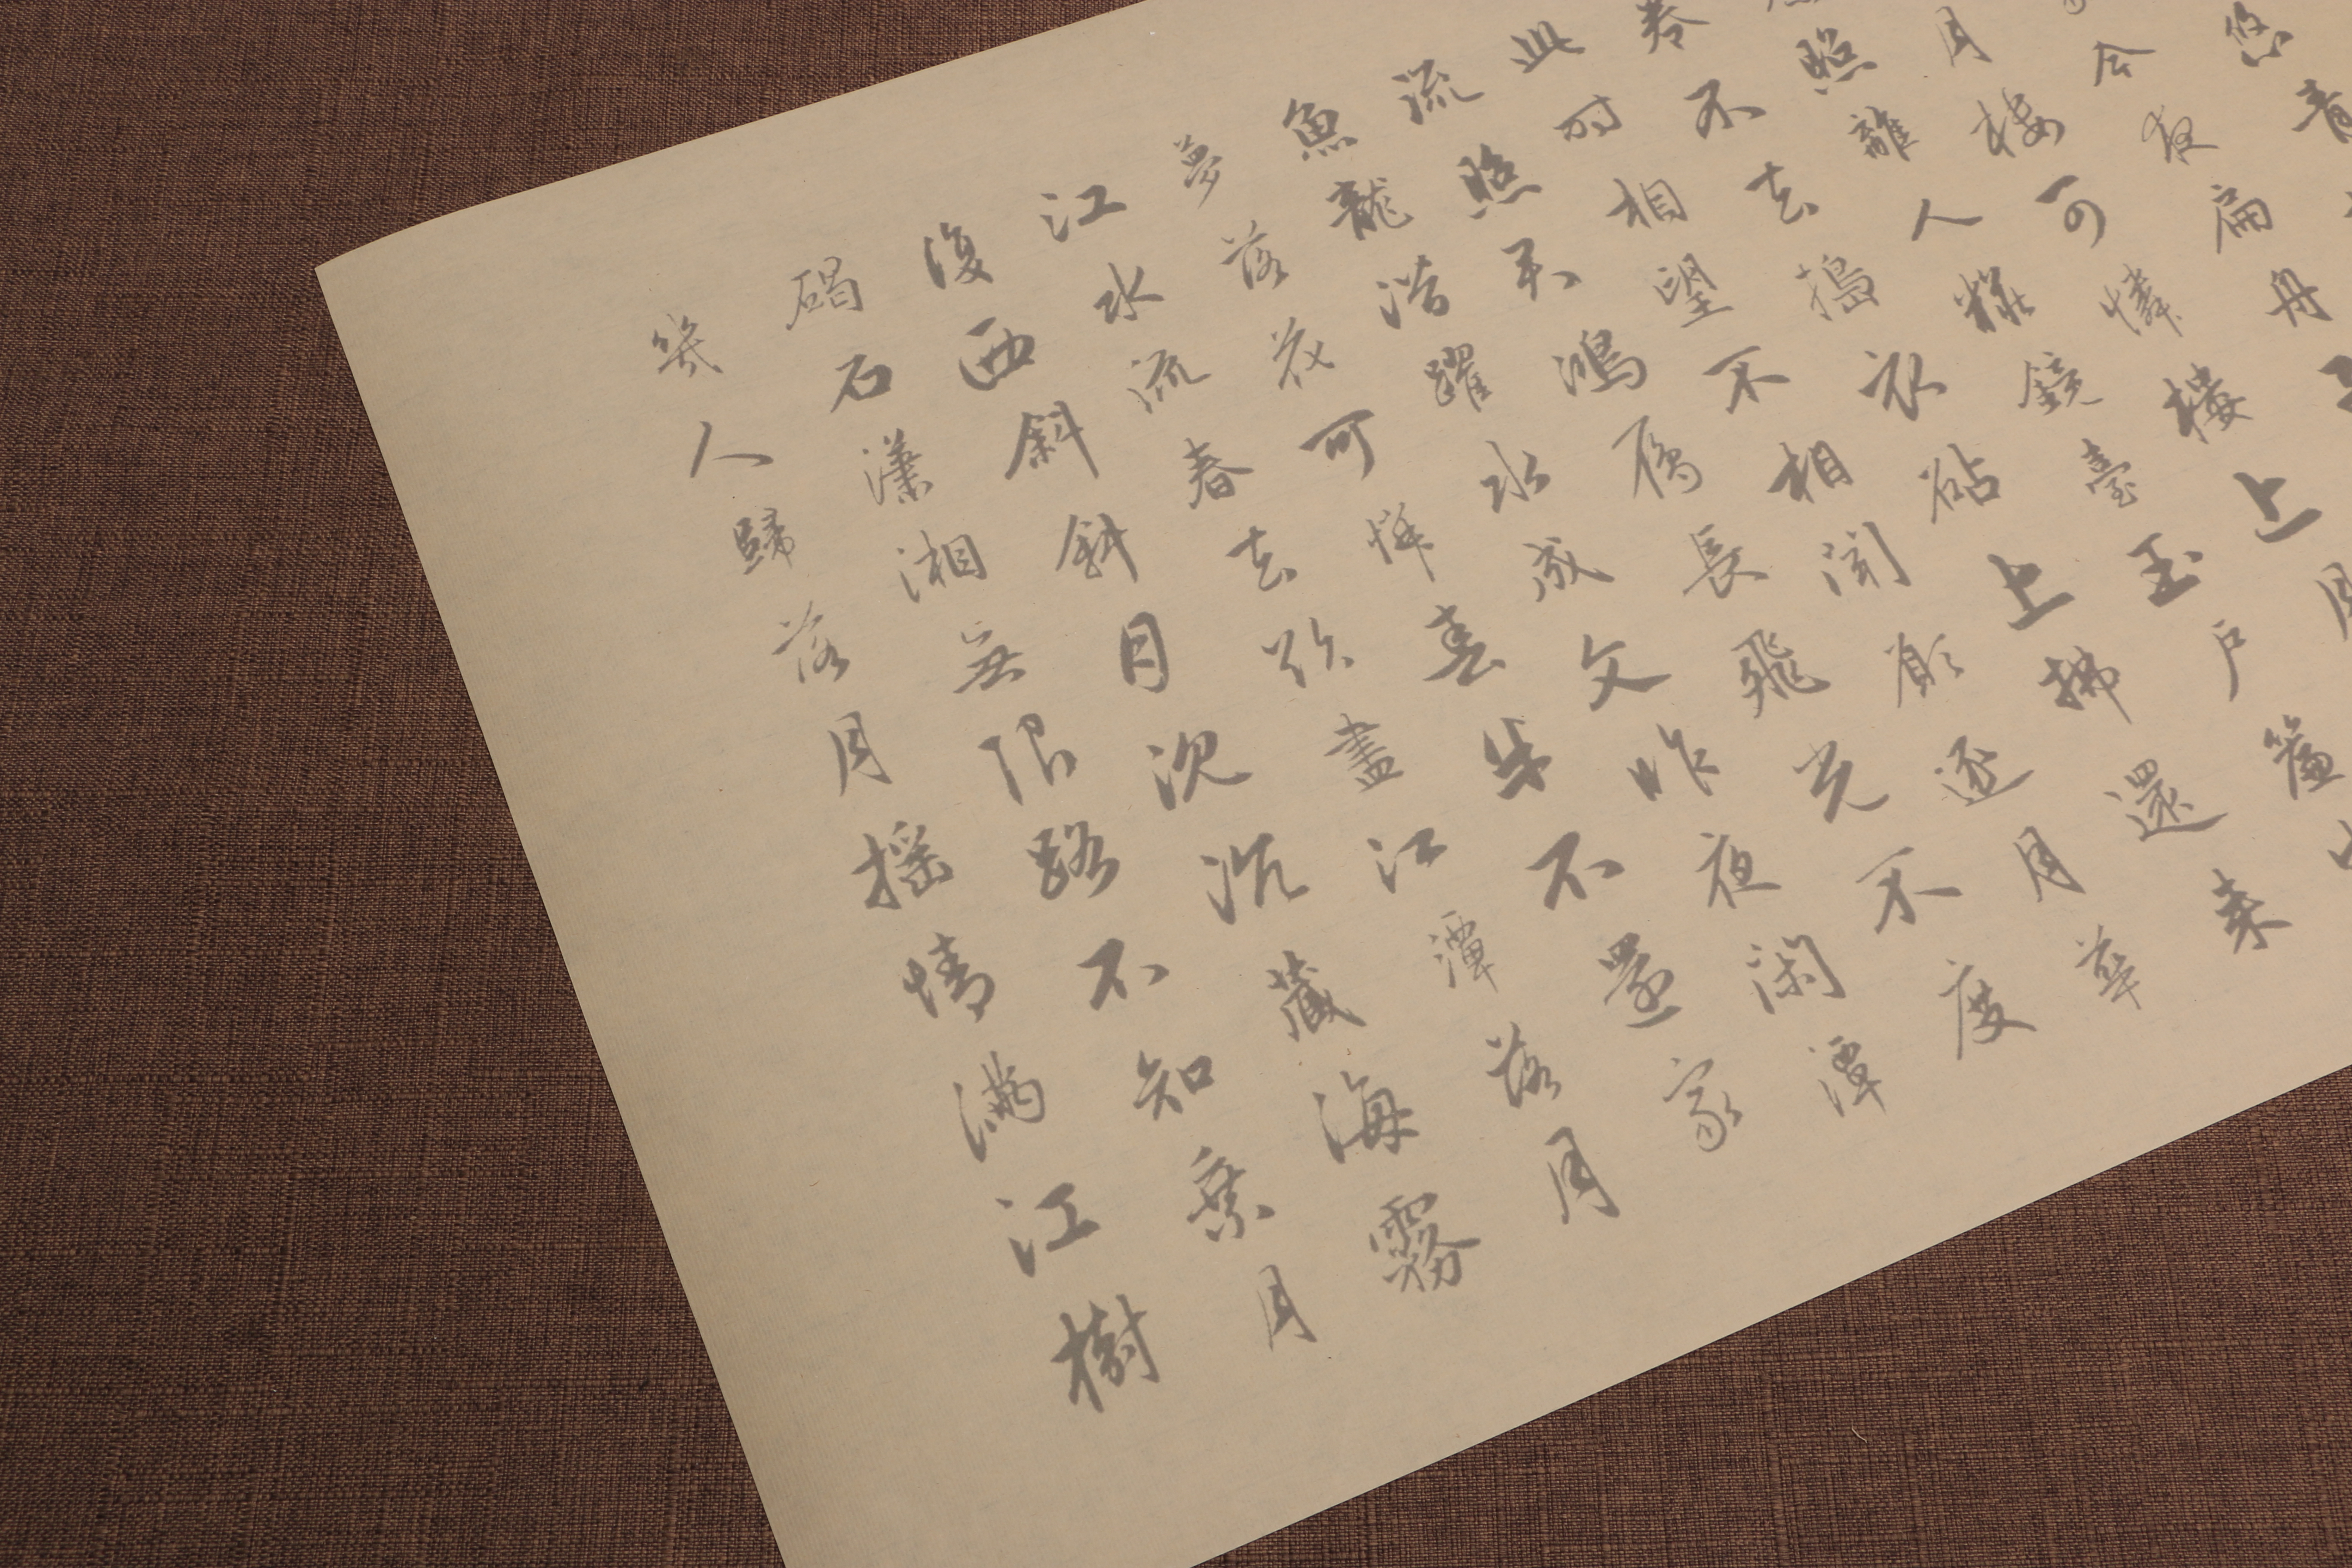 悠青
今夜扁舟
月樓可憐樓上月
照離人粧鏡臺玉戶簾
卷不去搗衣砧上拂還来
此時相望不相聞願逐月華
流照君鴻雁長飛光不度
魚龍潛躍水成文昨夜閑潭
夢落花可憐春半不還家
江水流春去欲盡江潭落月
復西斜斜月沉沉藏海霧
碣石瀟湘無限路不知乘月
幾人歸落月摇情滿江樹